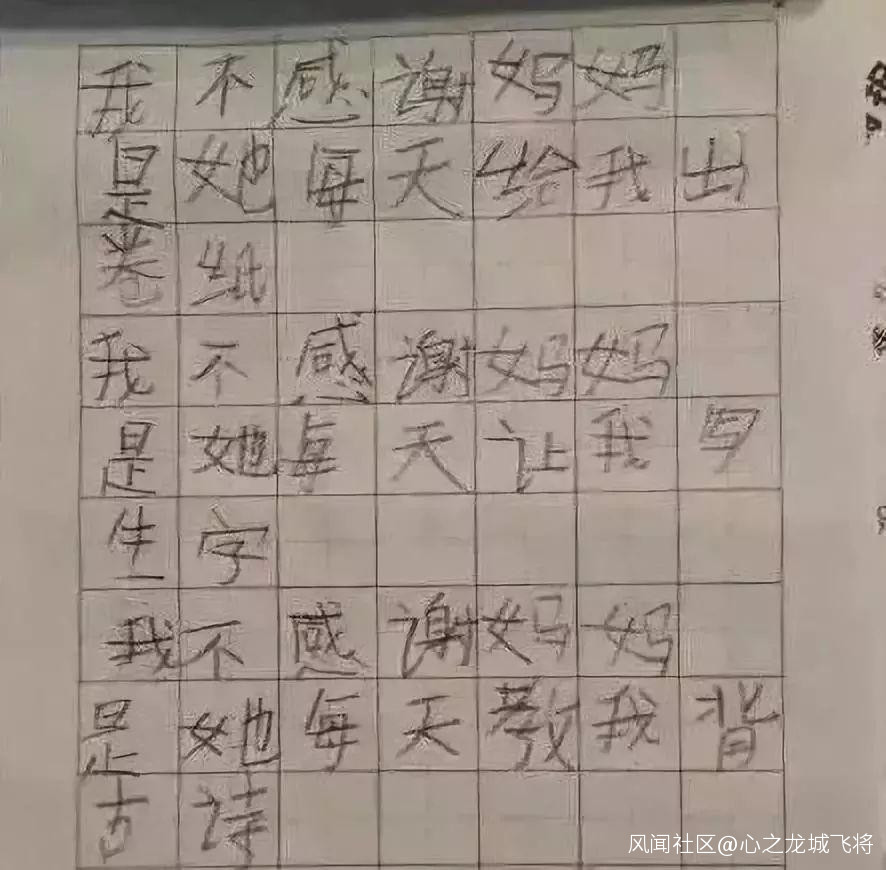 我不感谢妈妈
是她每天给我出
卷纸
我不感谢妈妈
是她每天让我写
生字
我不感谢妈妈
是她每天教我背
古诗
风闻社区@心之龙城飞将